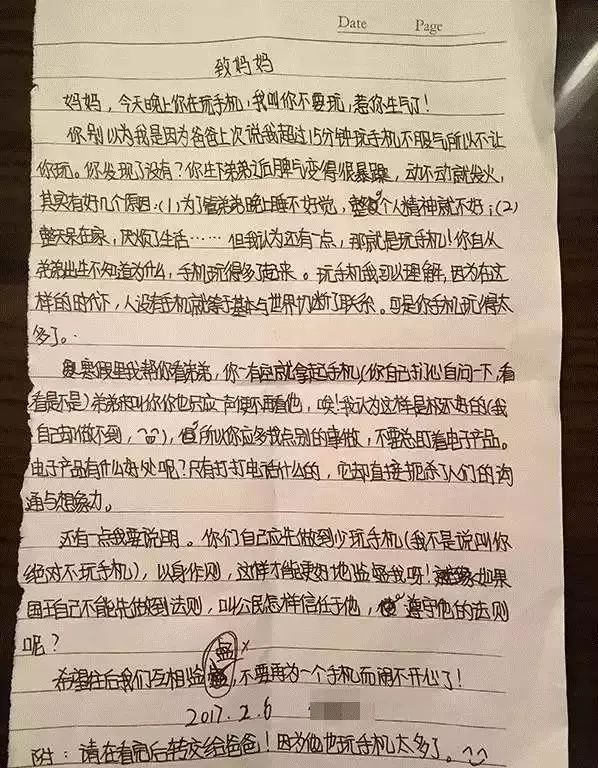 Date Page
致妈妈
妈妈，今天晚上你在玩手机，我叫你不要玩，惹你生气了！
你别以为我是因为爸爸上次说我超过15分钟玩手机不服气所以不让
你玩。你发现了没有？你生下弟弟近后脾气变得很暴躁，动不动就发火，
其实有好几个原因：（1）为了管弟弟晚上睡不好觉，整个人精神就不好；（2）
整天呆在家，厌烦了生活……但我认为还有一点，那就是玩手机！你自从
弟弟出生不知道为什么，手机玩得多了起来。玩手机我可以理解，因为在这
样的时代下，人没有手机就等于基本与世界切断了联系。可是你手机玩得太
多了。
寒假里我帮你看弟弟，你一有空就拿起手机（你自己扪心自问一下，看
看是不是）弟弟来叫你你也只应一声便不再看他，唉！我认为这样是极不好的（我
自己却做不到，），所以你应多找点别的事做，不要总盯着电子产品。
电子产品有什么好处呢？只有打打电话什么的，它却直接扼杀了人们的沟
通与想象力。
还有一点我要说明。你们自己应先做到少玩手机（我不是说叫你
绝对不玩手机），以身作则，这样才能更好地监督我呀！如果
国王自己不能先做到法则，叫公民怎样信任于他，遵守他的法则
呢？
希望往后我们互相监督，不要再为一个手机而闹不开心了！
2017.2.6
附：请在看完后转交给爸爸！因为他也玩手机太多了。